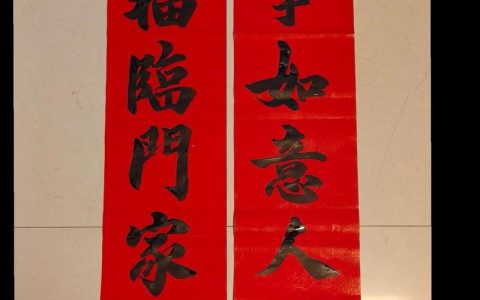 如意人
福臨門家